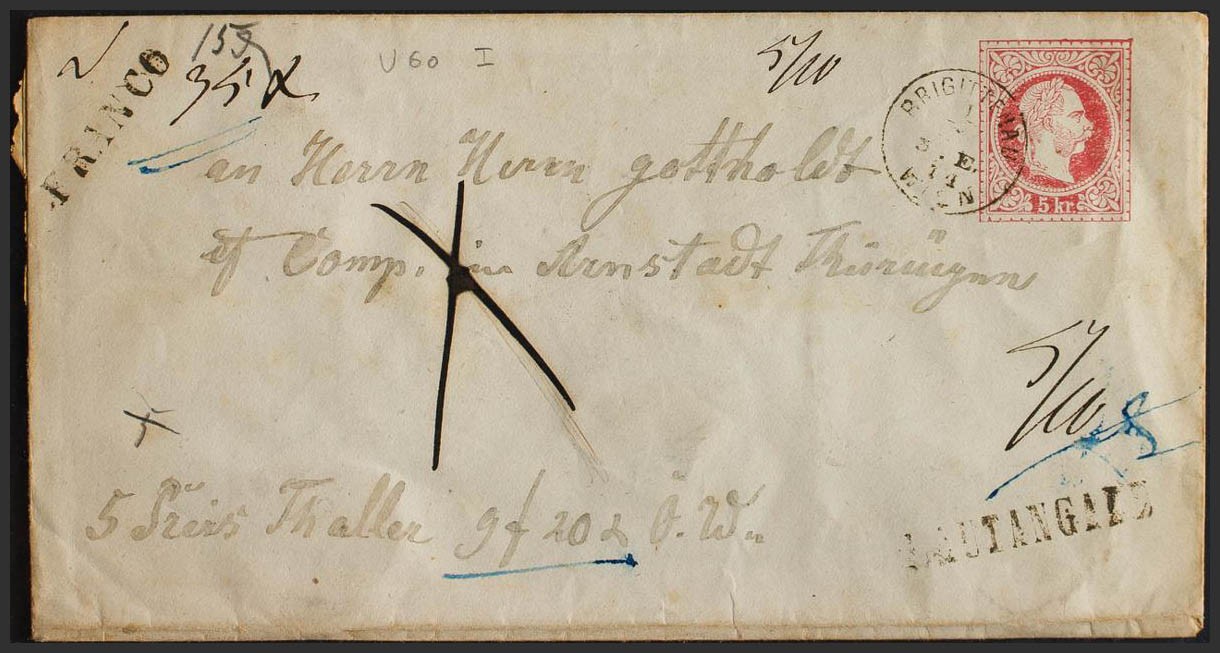 FRANCO
35 x
U 60 I
5/10
BRIGITTENAU
WIEN
5 kr.
an Herrn Herrn Gottholdt
et Comp. in Arnstadt Thüringen
5/10
5 Preis Thaller 9 f 20 x Ö. W.
LAUTANGABE